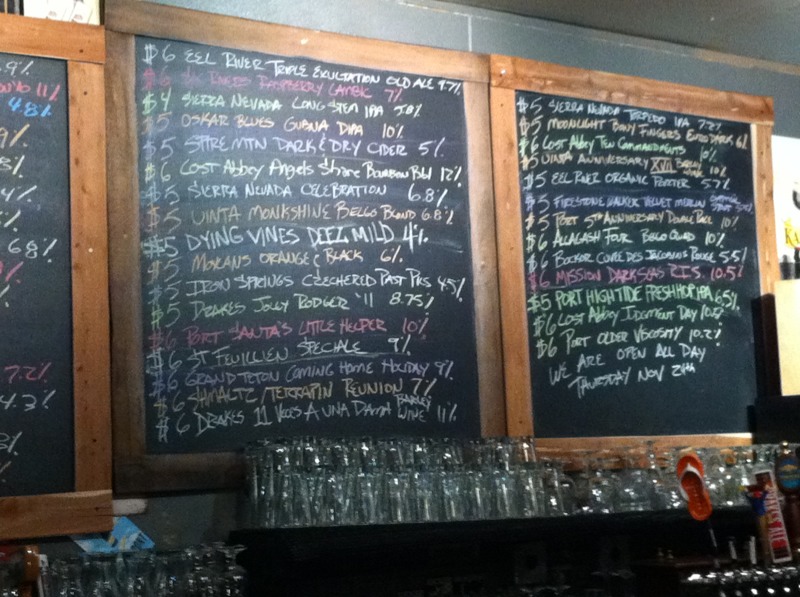 .9%
11%
4.8%
9%
8%
4%
6.8%
7.2%
4.3%
$6 EEL RIVER TRIPLE EXULTATION OLD ALE 9.7%
$6 RASPBERRY LAMBIC 7%
$4 SIERRA NEVADA LONG STEM IPA
$5 OSKAR BLUES GUBNA DIPA 10%
$5 SPIRE MTN DARK & DRY CIDER 5%
$6 LOST ABBEY ANGELS SHARE BOURBON BBL 12%
$5 SIERRA NEVADA CELEBRATION 6.8%
$5 UINTA MONKSHINE BELGO BLOND 6.8%
$5 DYING VINES DEEZ MILD 4%
$5 MORANS ORANGE & BLACK 6%
$5 IRON SPRINGS CZECHERED PAST PILS 4.5%
$5 DRAKES JOLLY RODGER '11 8.75%
$6 PORT SANTA'S LITTLE HELPER 10%
$6 ST FEUILLIEN SPECIALE 9%
$6 GRAND TETON COMING HOME HOLIDAY 9%
$6 SHMALTZ/TERRAPIN REUNION 7%
$6 DRAKES 11 VECES A UNA DAMA BARLEY WINE 11%
$5 SIERRA NEVADA TORPEDO IPA 7.2%
$5 MOONLIGHT BONY FINGERS EURO DARK 6%
$6 LOST ABBEY TEN COMMANDMENTS 10%
$5 UINTA ANNIVERSARY XVII BARLEY WINE 10%
$5 EEL RIVER ORGANIC PORTER 5.7%
$5 FIRESTONE WALKER VELVET MERLIN OATMEAL STOUT
$5 PORT 5TH ANNIVERSARY DOUBLE PALE 10%
$6 ALLAGASH FOUR BELGO QUAD 10%
$6 BOCKOR CUVEE DES JACOBINS ROUGE 5.5%
$6 MISSION DARK SEAS R.I.S. 10.5%
$5 PORT HIGH TIDE FRESH HOP IPA 6.5%
$6 LOST ABBEY JUDGMENT DAY 10.5%
$6 PORT OLDER VISCOSITY 10.2%
WE ARE OPEN ALL DAY
THURSDAY NOV 24TH